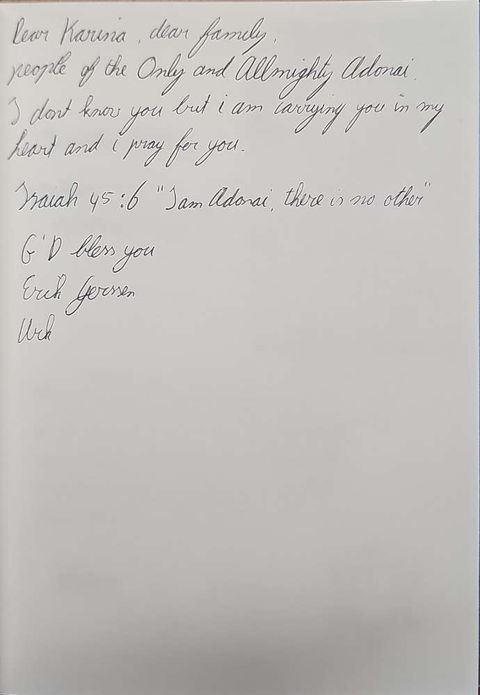 Dear Karina, dear family,
people of the Only and Allmighty Adonai.
I dont know you but i am carrying you in my
heart and i pray for you.
Isaiah 45:6 "I am Adonai, there is no other"
G'D bless you
Erik Gerssen
Urk